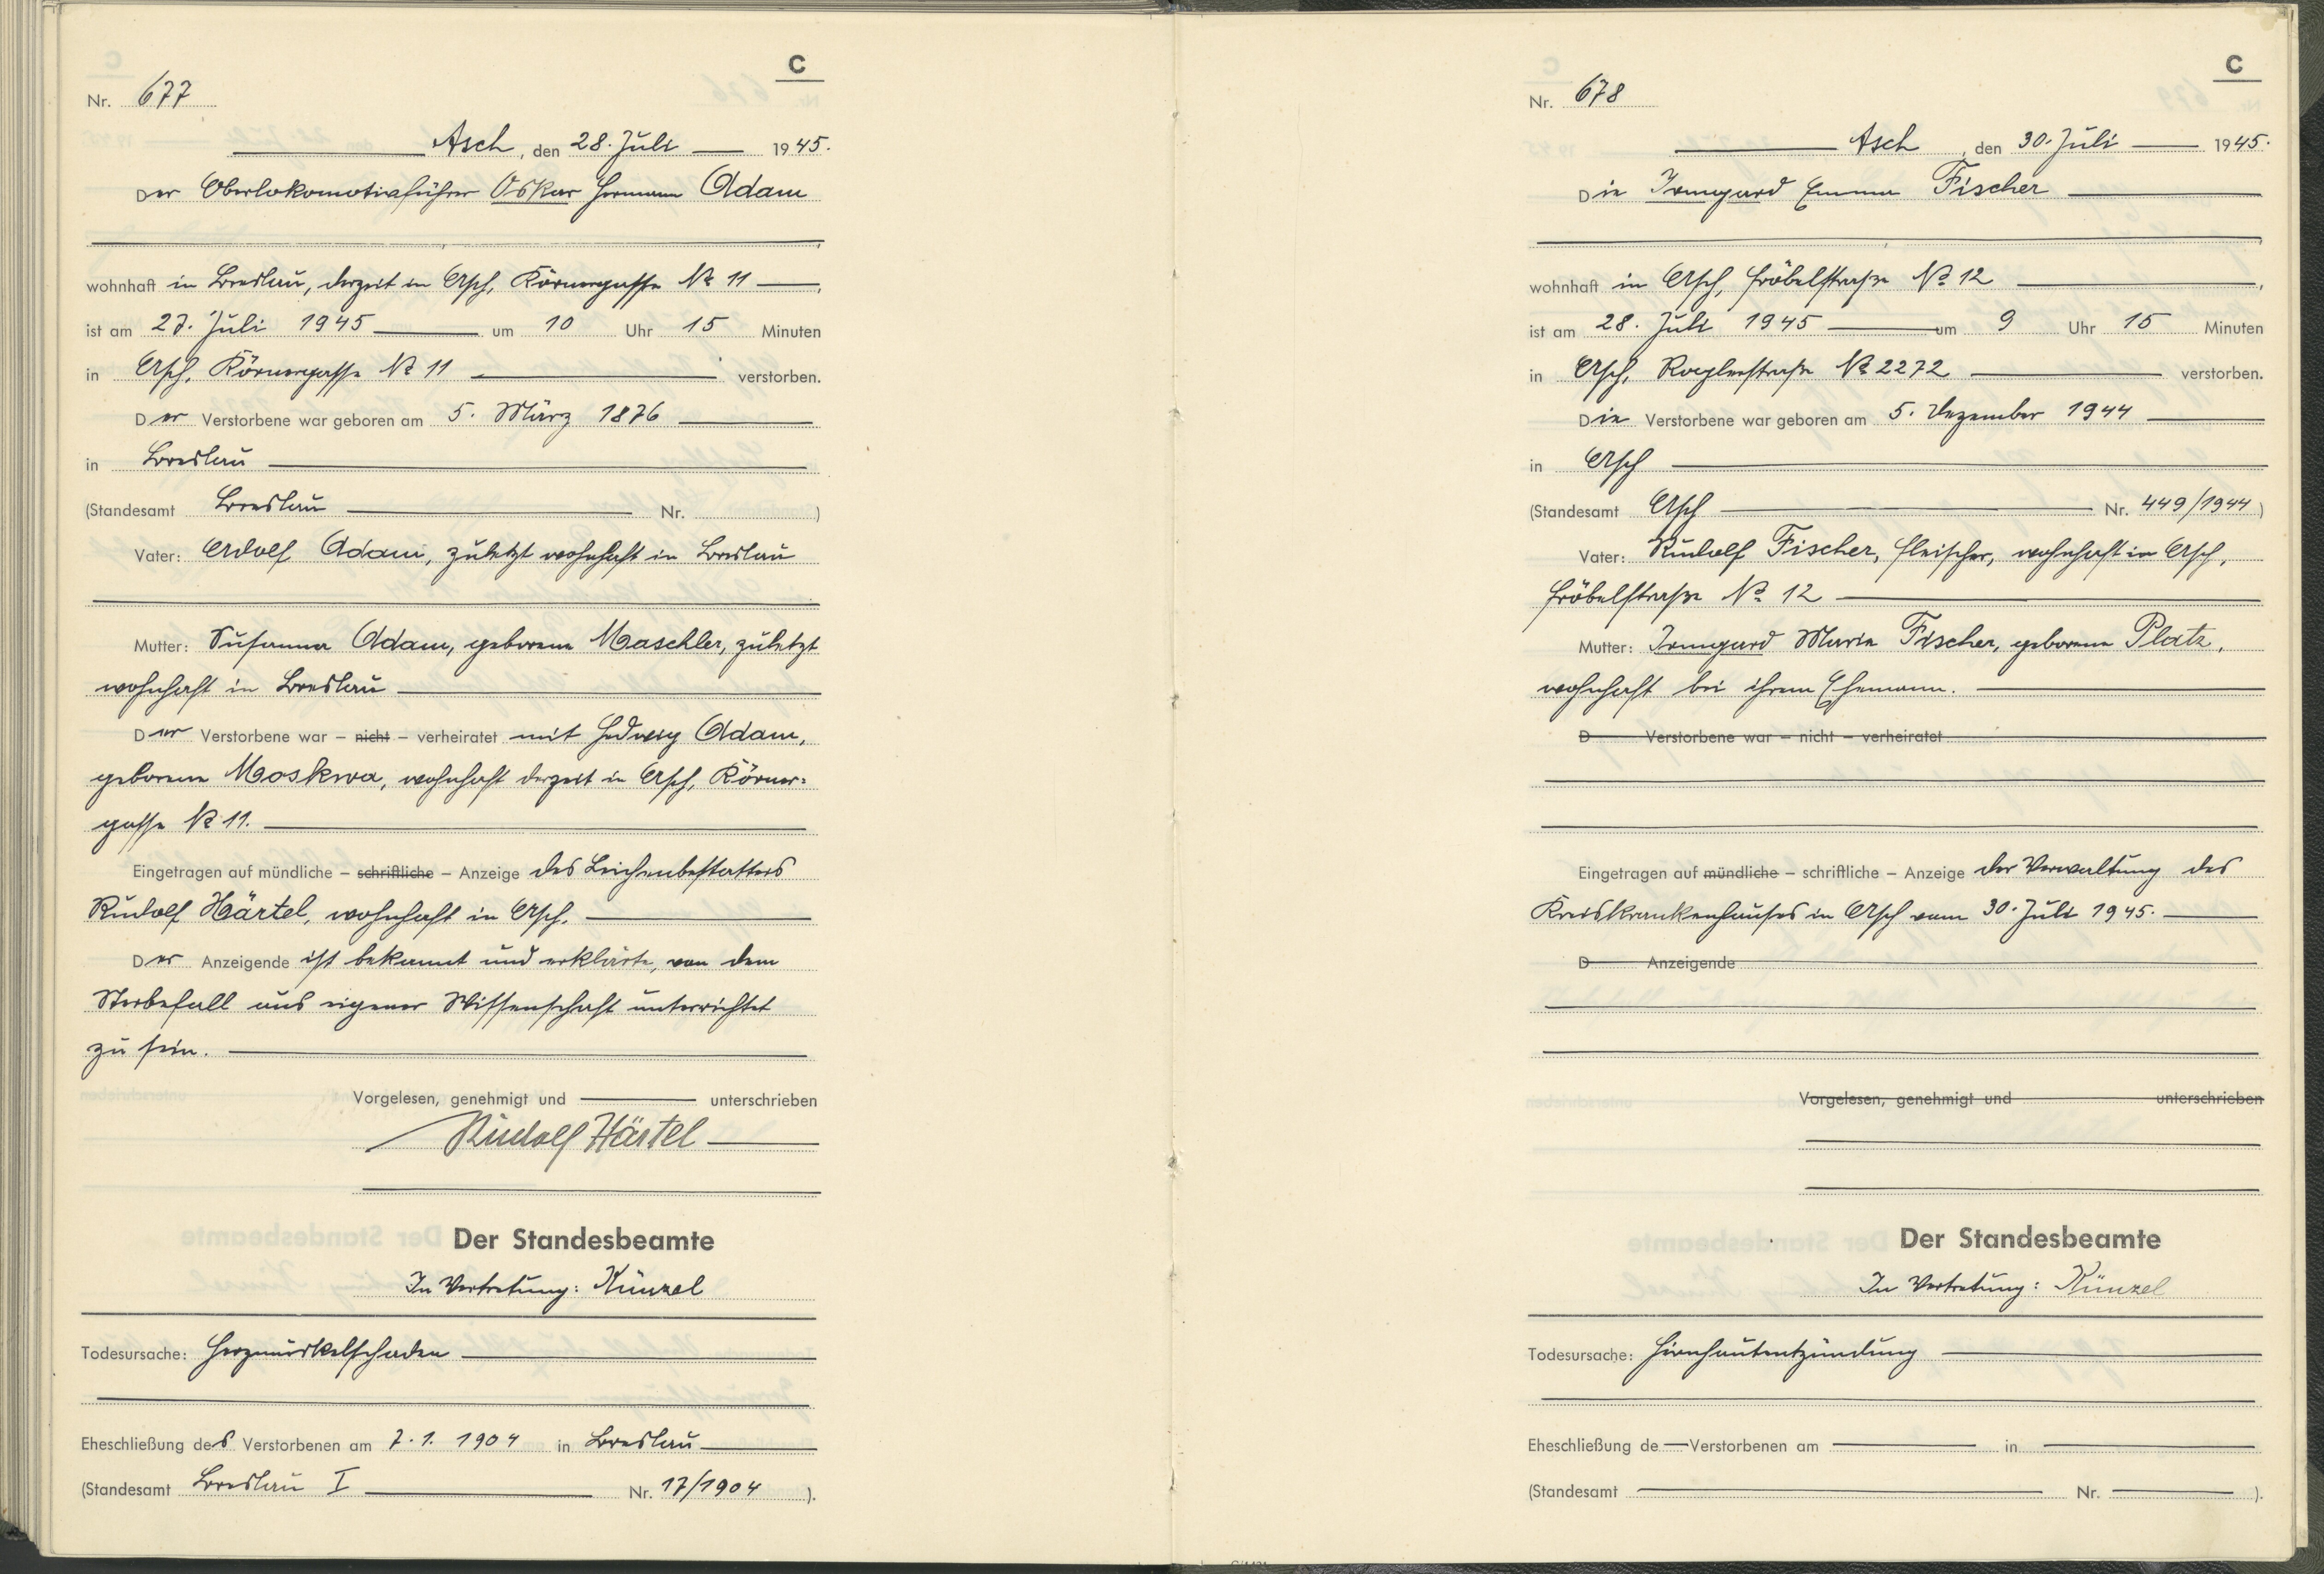 C
Nr. 677
Asch, den 28. Juli 1945.
Der Oberlokomotivführer Oskar Hermann Adam
wohnhaft in Breslau, derzeit in Asch, Körnergasse № 11,
ist am 27. Juli 1945 um 10 Uhr 15 Minuten
in Asch, Körnergasse № 11 verstorben.
Der Verstorbene war geboren am 5. März 1876
in Breslau
(Standesamt Breslau Nr. )
Vater: Adolf Adam, zuletzt wohnhaft in Breslau
Mutter: Susanna Adam, geborene Maschler, zuletzt
wohnhaft in Breslau
Der Verstorbene war – nicht – verheiratet mit Hedwig Adam,
geborene Moskwa, wohnhaft derzeit in Asch, Körner=
gasse № 11.
Eingetragen auf mündliche – schriftliche – Anzeige des Leichenbestatters
Rudolf Härtel, wohnhaft in Asch.
Der Anzeigende ist bekannt und erklärte, von dem
Sterbefall aus eigener Wissenschaft unterrichtet
zu sein.
Vorgelesen, genehmigt und unterschrieben
Rudolf Härtel
Der Standesbeamte
In Vertretung: Künzel
Todesursache: Herzmuskelschaden
Eheschließung des Verstorbenen am 7.1. 1904 in Breslau
(Standesamt Breslau I Nr. 17/1904 ).
C
Nr. 678
Asch, den 30. Juli 1945.
Die Irmgard Emma Fischer
wohnhaft in Asch, Fröbelstraße № 12,
ist am 28. Juli 1945 um 9 Uhr 15 Minuten
in Asch, Roglerstraße № 2272 verstorben.
Die Verstorbene war geboren am 5. Dezember 1944
in Asch
(Standesamt Asch Nr. 449/1944)
Vater: Rudolf Fischer, Fleischer, wohnhaft in Asch,
Fröbelstraße № 12
Mutter: Irmgard Maria Fischer, geborene Platz,
wohnhaft bei ihrem Ehemann.
D Verstorbene war – nicht – verheiratet
Eingetragen auf mündliche – schriftliche – Anzeige der Verwaltung des
Kreiskrankenhauses in Asch vom 30. Juli 1945.
D Anzeigende
Vorgelesen, genehmigt und unterschrieben
Der Standesbeamte
In Vertretung: Künzel
Todesursache: Hirnhautentzündung
Eheschließung de Verstorbenen am in
(Standesamt Nr. ).